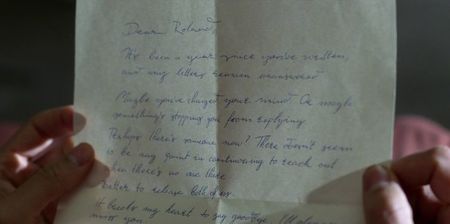 Dear Roland,
It's been a year since you've written,
and my letters remain unanswered
Maybe you've changed your mind. Or maybe
something's stopping you from replying.
Perhaps there's someone new? There doesn't seem
to be any point in continuing to reach out
when there's no one there
better to release both of us.
It breaks my heart to say goodbye.
miss you